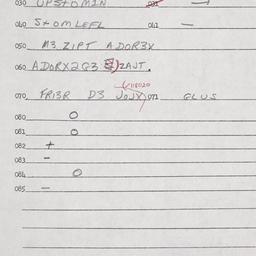 030 UPSTOMIN 031 —
040 STOMLEFL 041 —
050 M3 ZIPT ADOR3X
060 ADORX2G3 ZAJT.
118020
070 FRI3R D3 JOJX 071 GLUS
080 O
081 O
082 +
083 -
084 O
085 —